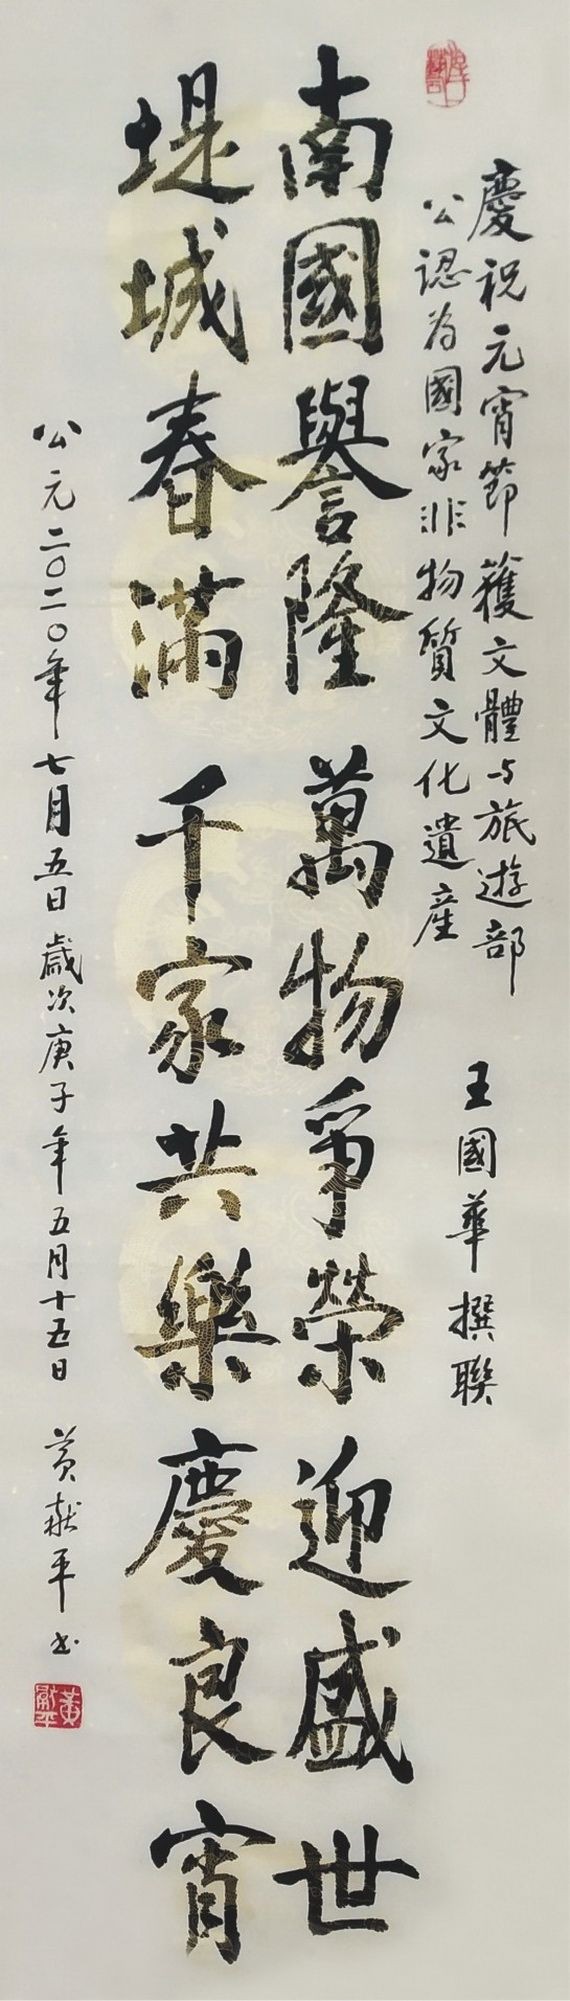 慶祝元宵節獲文體与旅遊部
公認為國家非物質文化遺産
王國華撰聯
南國譽隆萬物爭榮迎盛世
堤城春滿千家共樂慶良宵
公元二〇二〇年七月五日歲次庚子年五月十五日 黃献平书